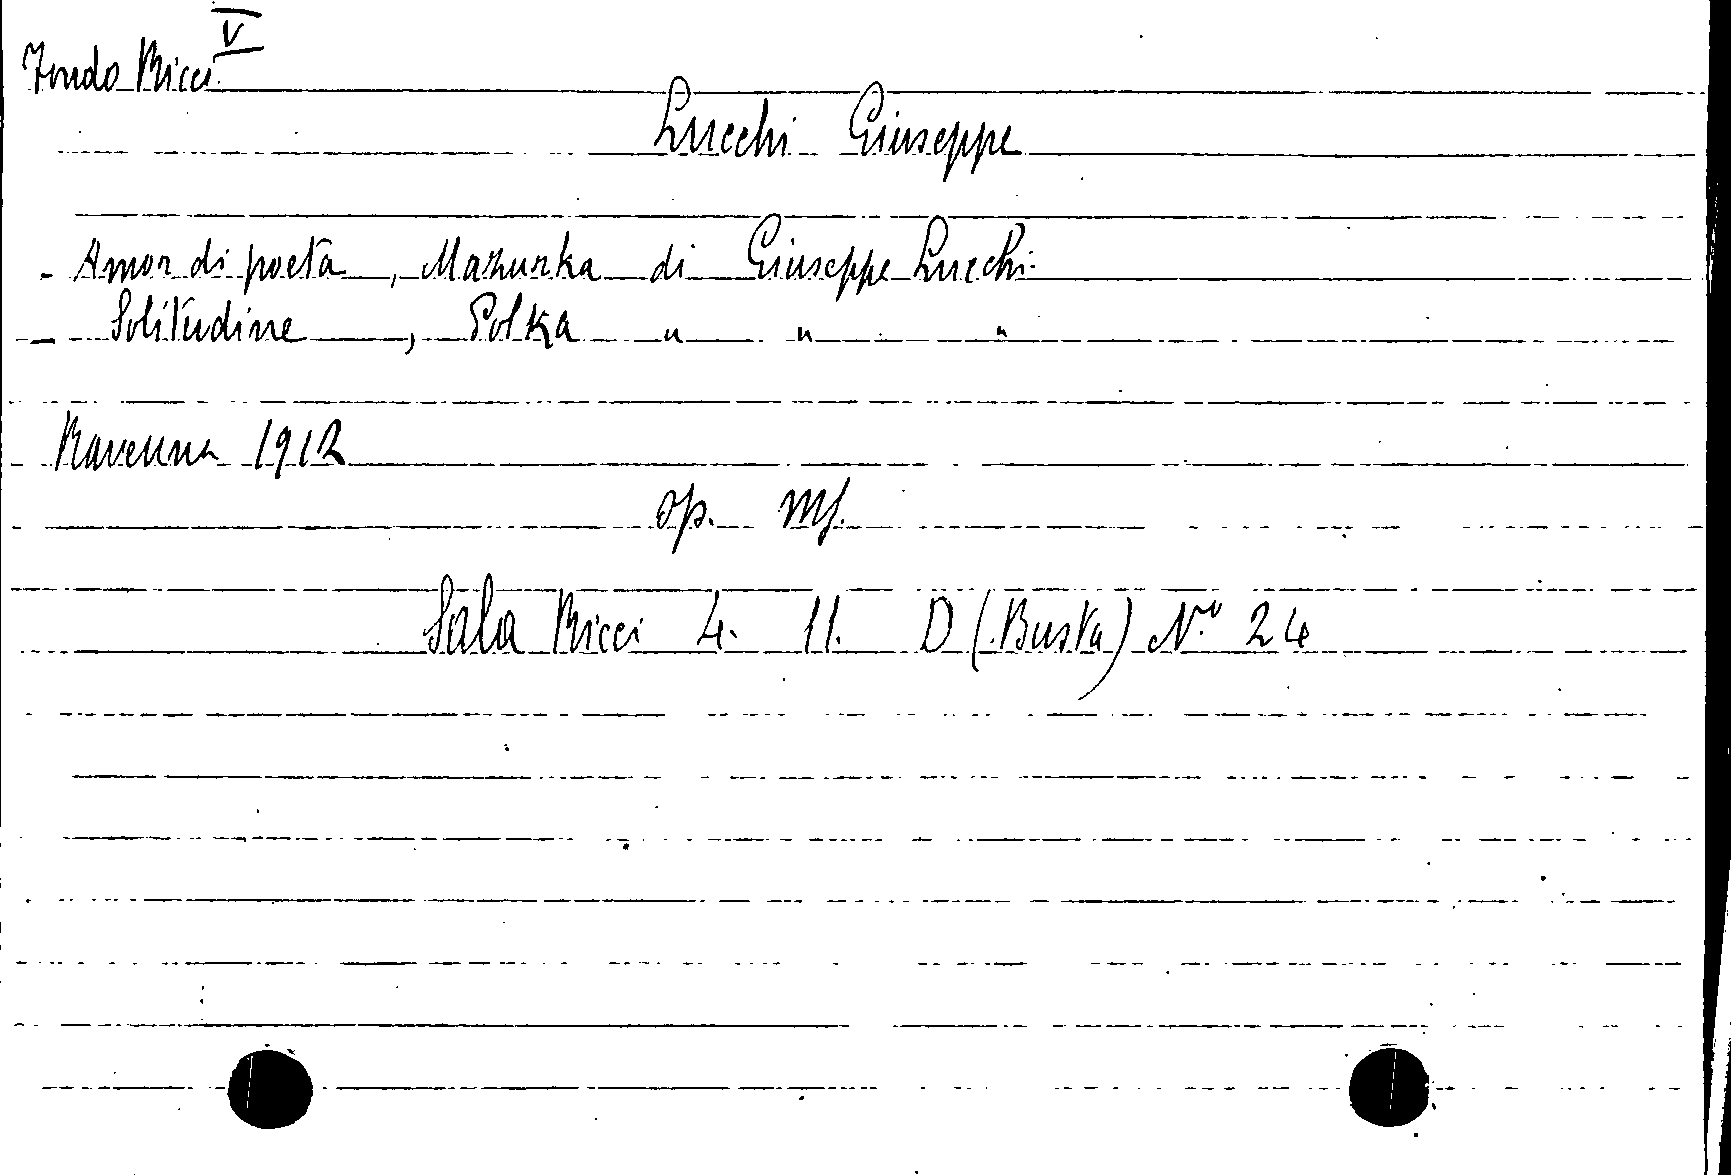 V
Fondo Ricci
Lucchi Giuseppe
- Amor di poeta, Mazurka di Giuseppe Lucchi
- Solitudine, Polka " " "
Ravenna 1912
op. ms.
Sala Ricci 4. 11. D (Busta) N.º 24